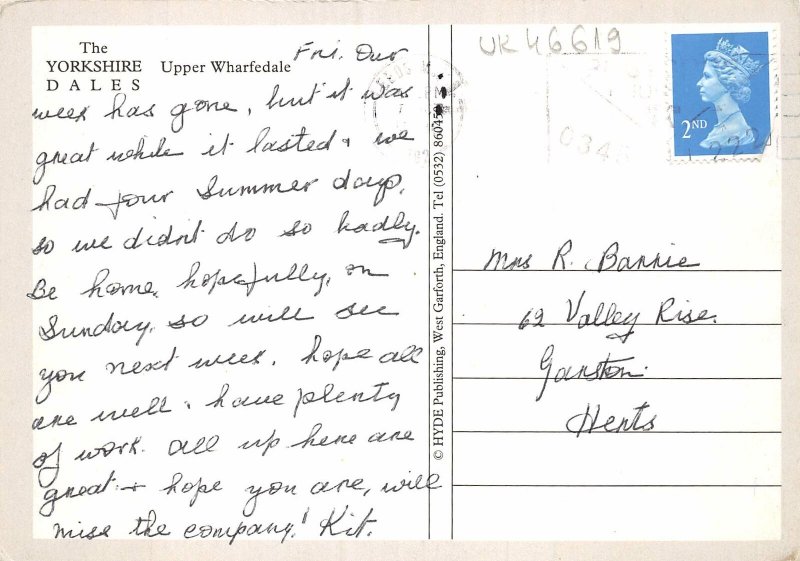 The
YORKSHIRE Upper Wharfedale
DALES
Fri. Our
week has gone, but it was
great while it lasted, we
had four Summer days,
so we didnt do so badly.
Be home, hopefully, on
Sunday, so will see
you next week. hope all
are well. have plenty
of work. all up here are
great + hope you are, will
miss the company! Kit.
© HYDE Publishing, West Garforth, England. Tel (0532) 860450
UK46619
2ND
Mrs R. Barrie
62 Valley Rise.
Garston.
Herts